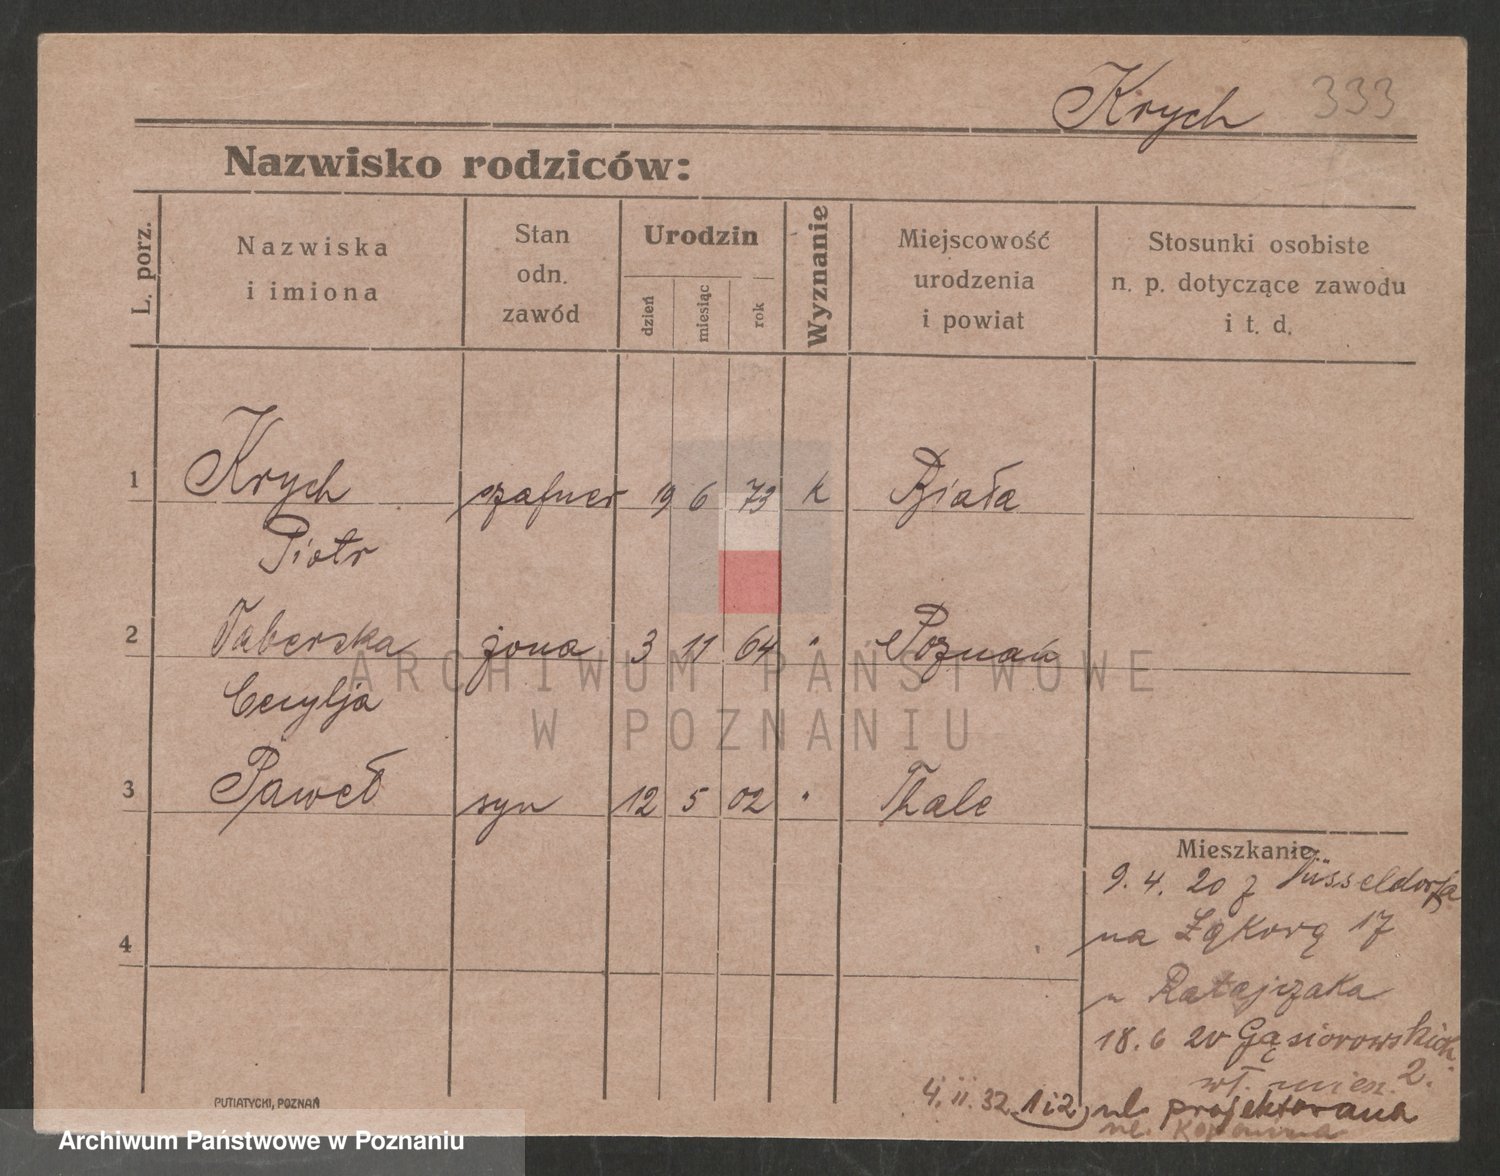 Krych 333
Nazwisko rodziców:
L. porz.
Nazwiska
i imiona
Stan
odn.
zawód
Urodzin
dzień
miesiąc
rok
Wyznanie
Miejscowość
urodzenia
i powiat
Stosunki osobiste
n. p. dotyczące zawodu
i t. d.
1 Krych szafner 19 6 73 k Biała
Piotr
2 Taberska żona 3 11 64 " Poznań
Cecylja
3 Paweł syn 12 5 02 " Thale
4
Mieszkanie
9. 4. 20 z Düsseldorfa
na Łąkową 17
u Ratajczaka
18. 6 20 Gąsiorowskich
wł. miesz. 2.
4. 11. 32 1 i 2) ul. projektowana
ul.
PUTIATYCKI, POZNAŃ
ARCHIWUM PAŃSTWOWE
W POZNANIU
Archiwum Państwowe w Poznaniu